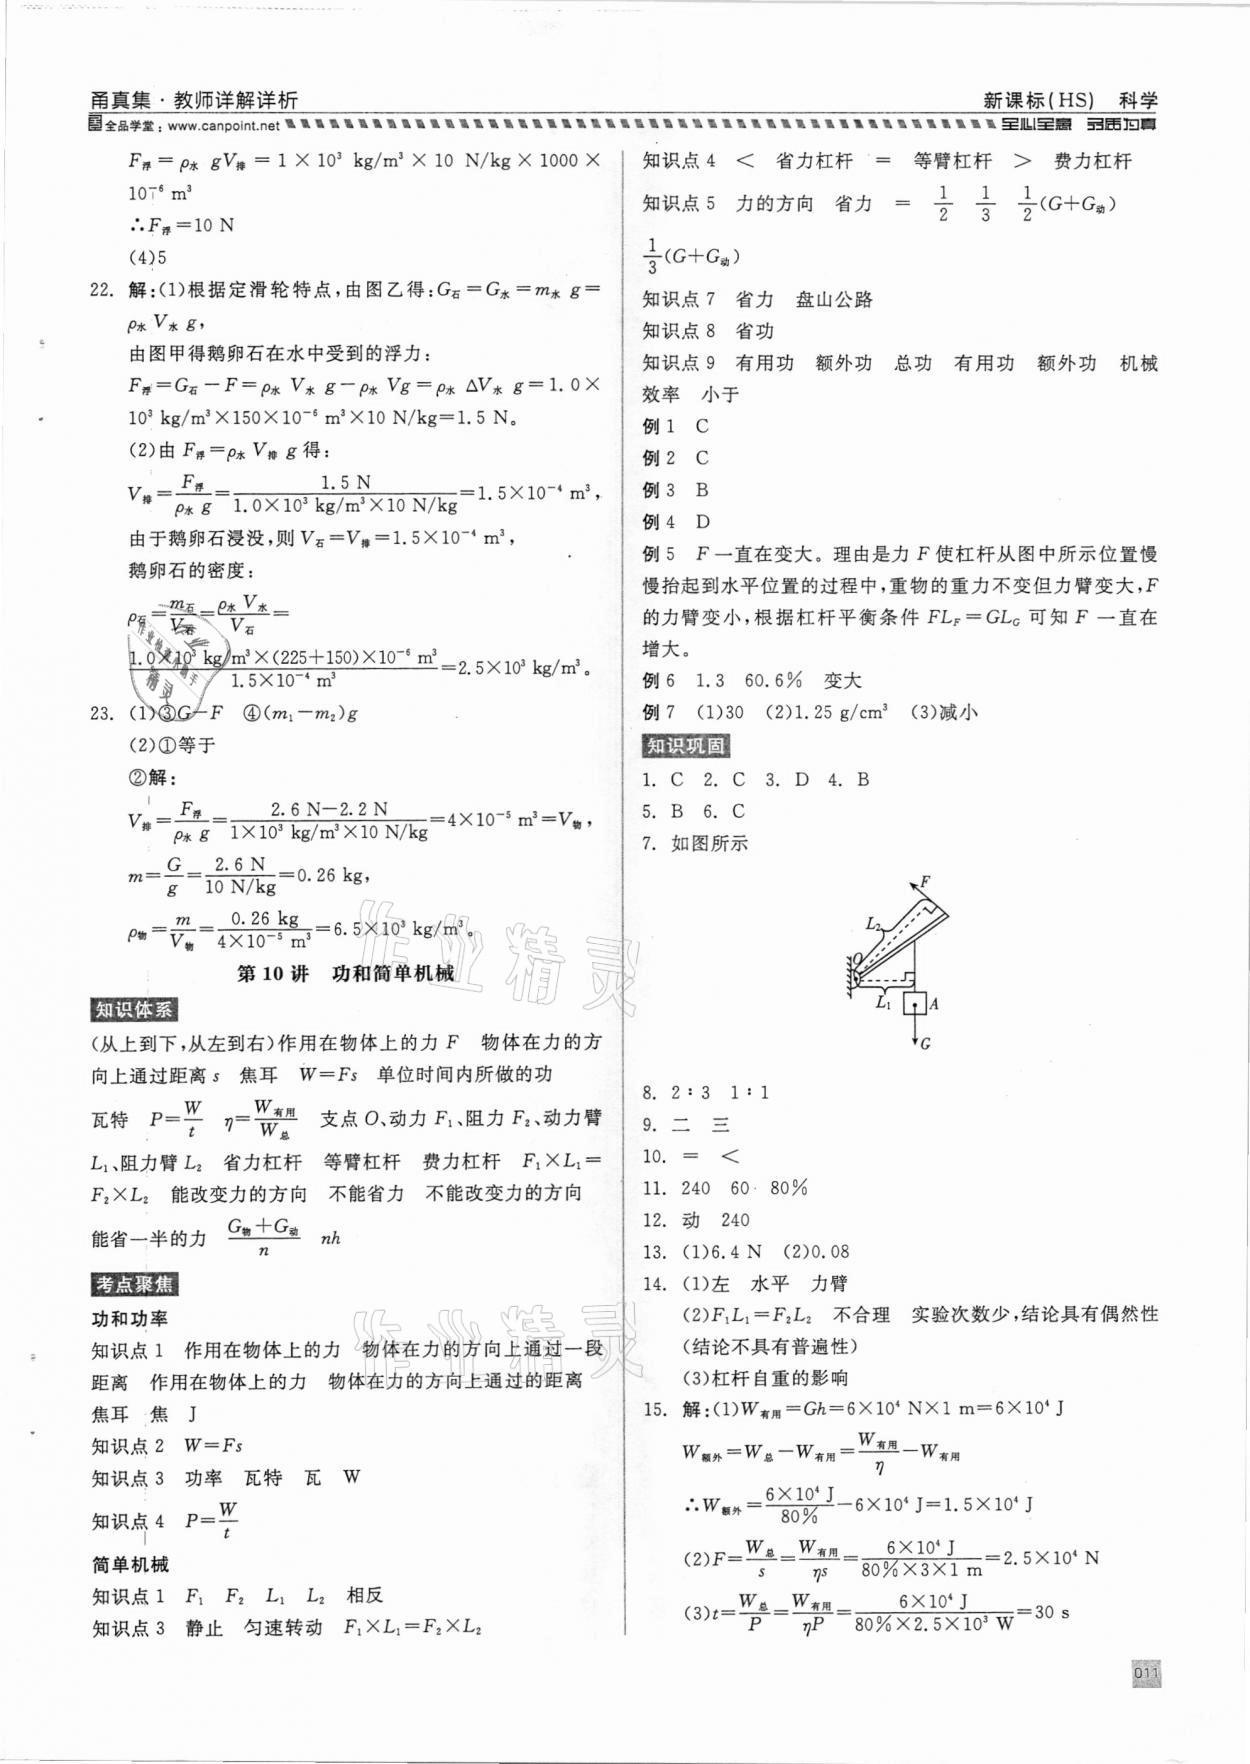 甬真集·教师详解详析
新课标(HS) 科学
全品学堂：www.canpoint.net
全心全意 品质为真
F浮=ρ水 gV排=1×10³ kg/m³×10 N/kg×1000×
10⁻⁶ m³
∴F浮=10 N
(4)5
22. 解:(1)根据定滑轮特点,由图乙得:G石=G水=m水 g=
ρ水 V水 g,
由图甲得鹅卵石在水中受到的浮力:
F浮=G石-F=ρ水 V水 g-ρ水 Vg=ρ水 ΔV水 g=1.0×
10³ kg/m³×150×10⁻⁶ m³×10 N/kg=1.5 N。
(2)由 F浮=ρ水 V排 g得:
V排=F浮/(ρ水 g)=1.5 N/(1.0×10³ kg/m³×10 N/kg)=1.5×10⁻⁴ m³,
由于鹅卵石浸没,则V石=V排=1.5×10⁻⁴ m³,
鹅卵石的密度:
ρ石=m石/V石=ρ水 V水/V石=
1.0×10³ kg/m³×(225+150)×10⁻⁶ m³/(1.5×10⁻⁴ m³)=2.5×10³ kg/m³。
23. (1)③G-F ④(m₁-m₂)g
(2)①等于
②解:
V排=F浮/(ρ水 g)=(2.6 N-2.2 N)/(1×10³ kg/m³×10 N/kg)=4×10⁻⁵ m³=V物,
m=G/g=2.6 N/(10 N/kg)=0.26 kg,
ρ物=m/V物=0.26 kg/(4×10⁻⁵ m³)=6.5×10³ kg/m³。
第10讲 功和简单机械
知识体系
(从上到下,从左到右)作用在物体上的力 F 物体在力的方
向上通过距离 s 焦耳 W=Fs 单位时间内所做的功
瓦特 P=W/t η=W有用/W总 支点 O、动力 F₁、阻力 F₂、动力臂
L₁、阻力臂 L₂ 省力杠杆 等臂杠杆 费力杠杆 F₁×L₁=
F₂×L₂ 能改变力的方向 不能省力 不能改变力的方向
能省一半的力 (G物+G动)/n nh
考点聚焦
功和功率
知识点 1 作用在物体上的力 物体在力的方向上通过一段
距离 作用在物体上的力 物体在力的方向上通过的距离
焦耳 焦 J
知识点 2 W=Fs
知识点 3 功率 瓦特 瓦 W
知识点 4 P=W/t
简单机械
知识点 1 F₁ F₂ L₁ L₂ 相反
知识点 3 静止 匀速转动 F₁×L₁=F₂×L₂
知识点 4 < 省力杠杆 = 等臂杠杆 > 费力杠杆
知识点 5 力的方向 省力 = 1/2 1/3 1/2(G+G动)
1/3(G+G动)
知识点 7 省力 盘山公路
知识点 8 省功
知识点 9 有用功 额外功 总功 有用功 额外功 机械
效率 小于
例 1 C
例 2 C
例 3 B
例 4 D
例 5 F一直在变大。理由是力 F 使杠杆从图中所示位置慢
慢抬起到水平位置的过程中,重物的重力不变但力臂变大,F
的力臂变小,根据杠杆平衡条件 FL_F=GL_G 可知 F 一直在
增大。
例 6 1.3 60.6% 变大
例 7 (1)30 (2)1.25 g/cm³ (3)减小
知识巩固
1. C 2. C 3. D 4. B
5. B 6. C
7. 如图所示
F
L₂
O
L₁
A
G
8. 2∶3 1∶1
9. 二 三
10. = <
11. 240 60 80%
12. 动 240
13. (1)6.4 N (2)0.08
14. (1)左 水平 力臂
(2)F₁L₁=F₂L₂ 不合理 实验次数少,结论具有偶然性
(结论不具有普遍性)
(3)杠杆自重的影响
15. 解:(1)W有用=Gh=6×10⁴ N×1 m=6×10⁴ J
W额外=W总-W有用=W有用/η-W有用
∴W额外=6×10⁴ J/80%-6×10⁴ J=1.5×10⁴ J
(2)F=W总/s=W有用/(ηs)=6×10⁴ J/(80%×3×1 m)=2.5×10⁴ N
(3)t=W总/P=W有用/(ηP)=6×10⁴ J/(80%×2.5×10³ W)=30 s
011
作业精灵
作业精灵